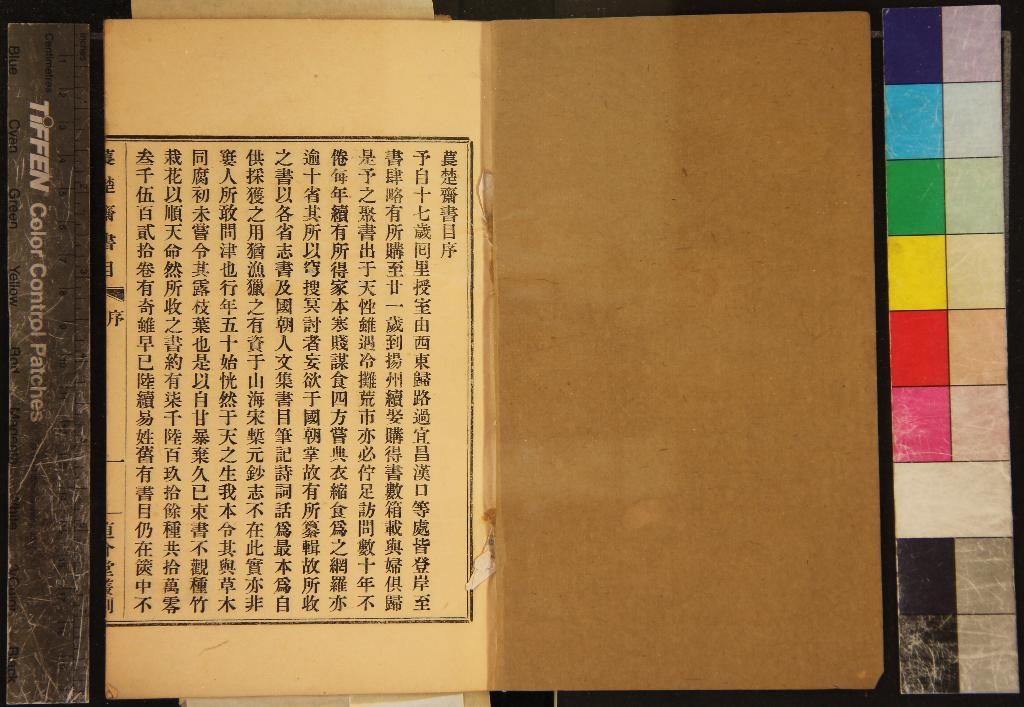 萇楚齋書目序
予自十七歲囘里授室由西東歸路過宜昌漢口等處皆登岸至
書肆略有所購至廿一歲到揚州續娶購得書數箱載與婦俱歸
是予之聚書出于天性雖遇冷攤荒市亦必佇足訪問數十年不
倦每年續有所得家本寒賤謀食四方嘗典衣縮食爲之網羅亦
逾十省其所以穹搜冥討者妄欲于國朝掌故有所纂輯故所收
之書以各省志書及國朝人文集書目筆記詩詞話爲最本爲自
供採獲之用猶漁獵之有資于山海宋槧元鈔志不在此實亦非
窶人所敢問津也行年五十始恍然于天之生我本令其與草木
同腐初未嘗令其露枝葉也是以自甘暴棄久已束書不觀種竹
栽花以順天命然所收之書約有柒千陸百玖拾餘種共拾萬零
叁千伍百貳拾卷有奇雖早已陸續易姓舊有書目仍在篋中不
萇楚齋書目
序
一
直介堂叢刻
TIFFEN Color Control Patches
Centimetres
Inches
Blue
Cyan
Green
Yellow
Red
Magenta
White
Black